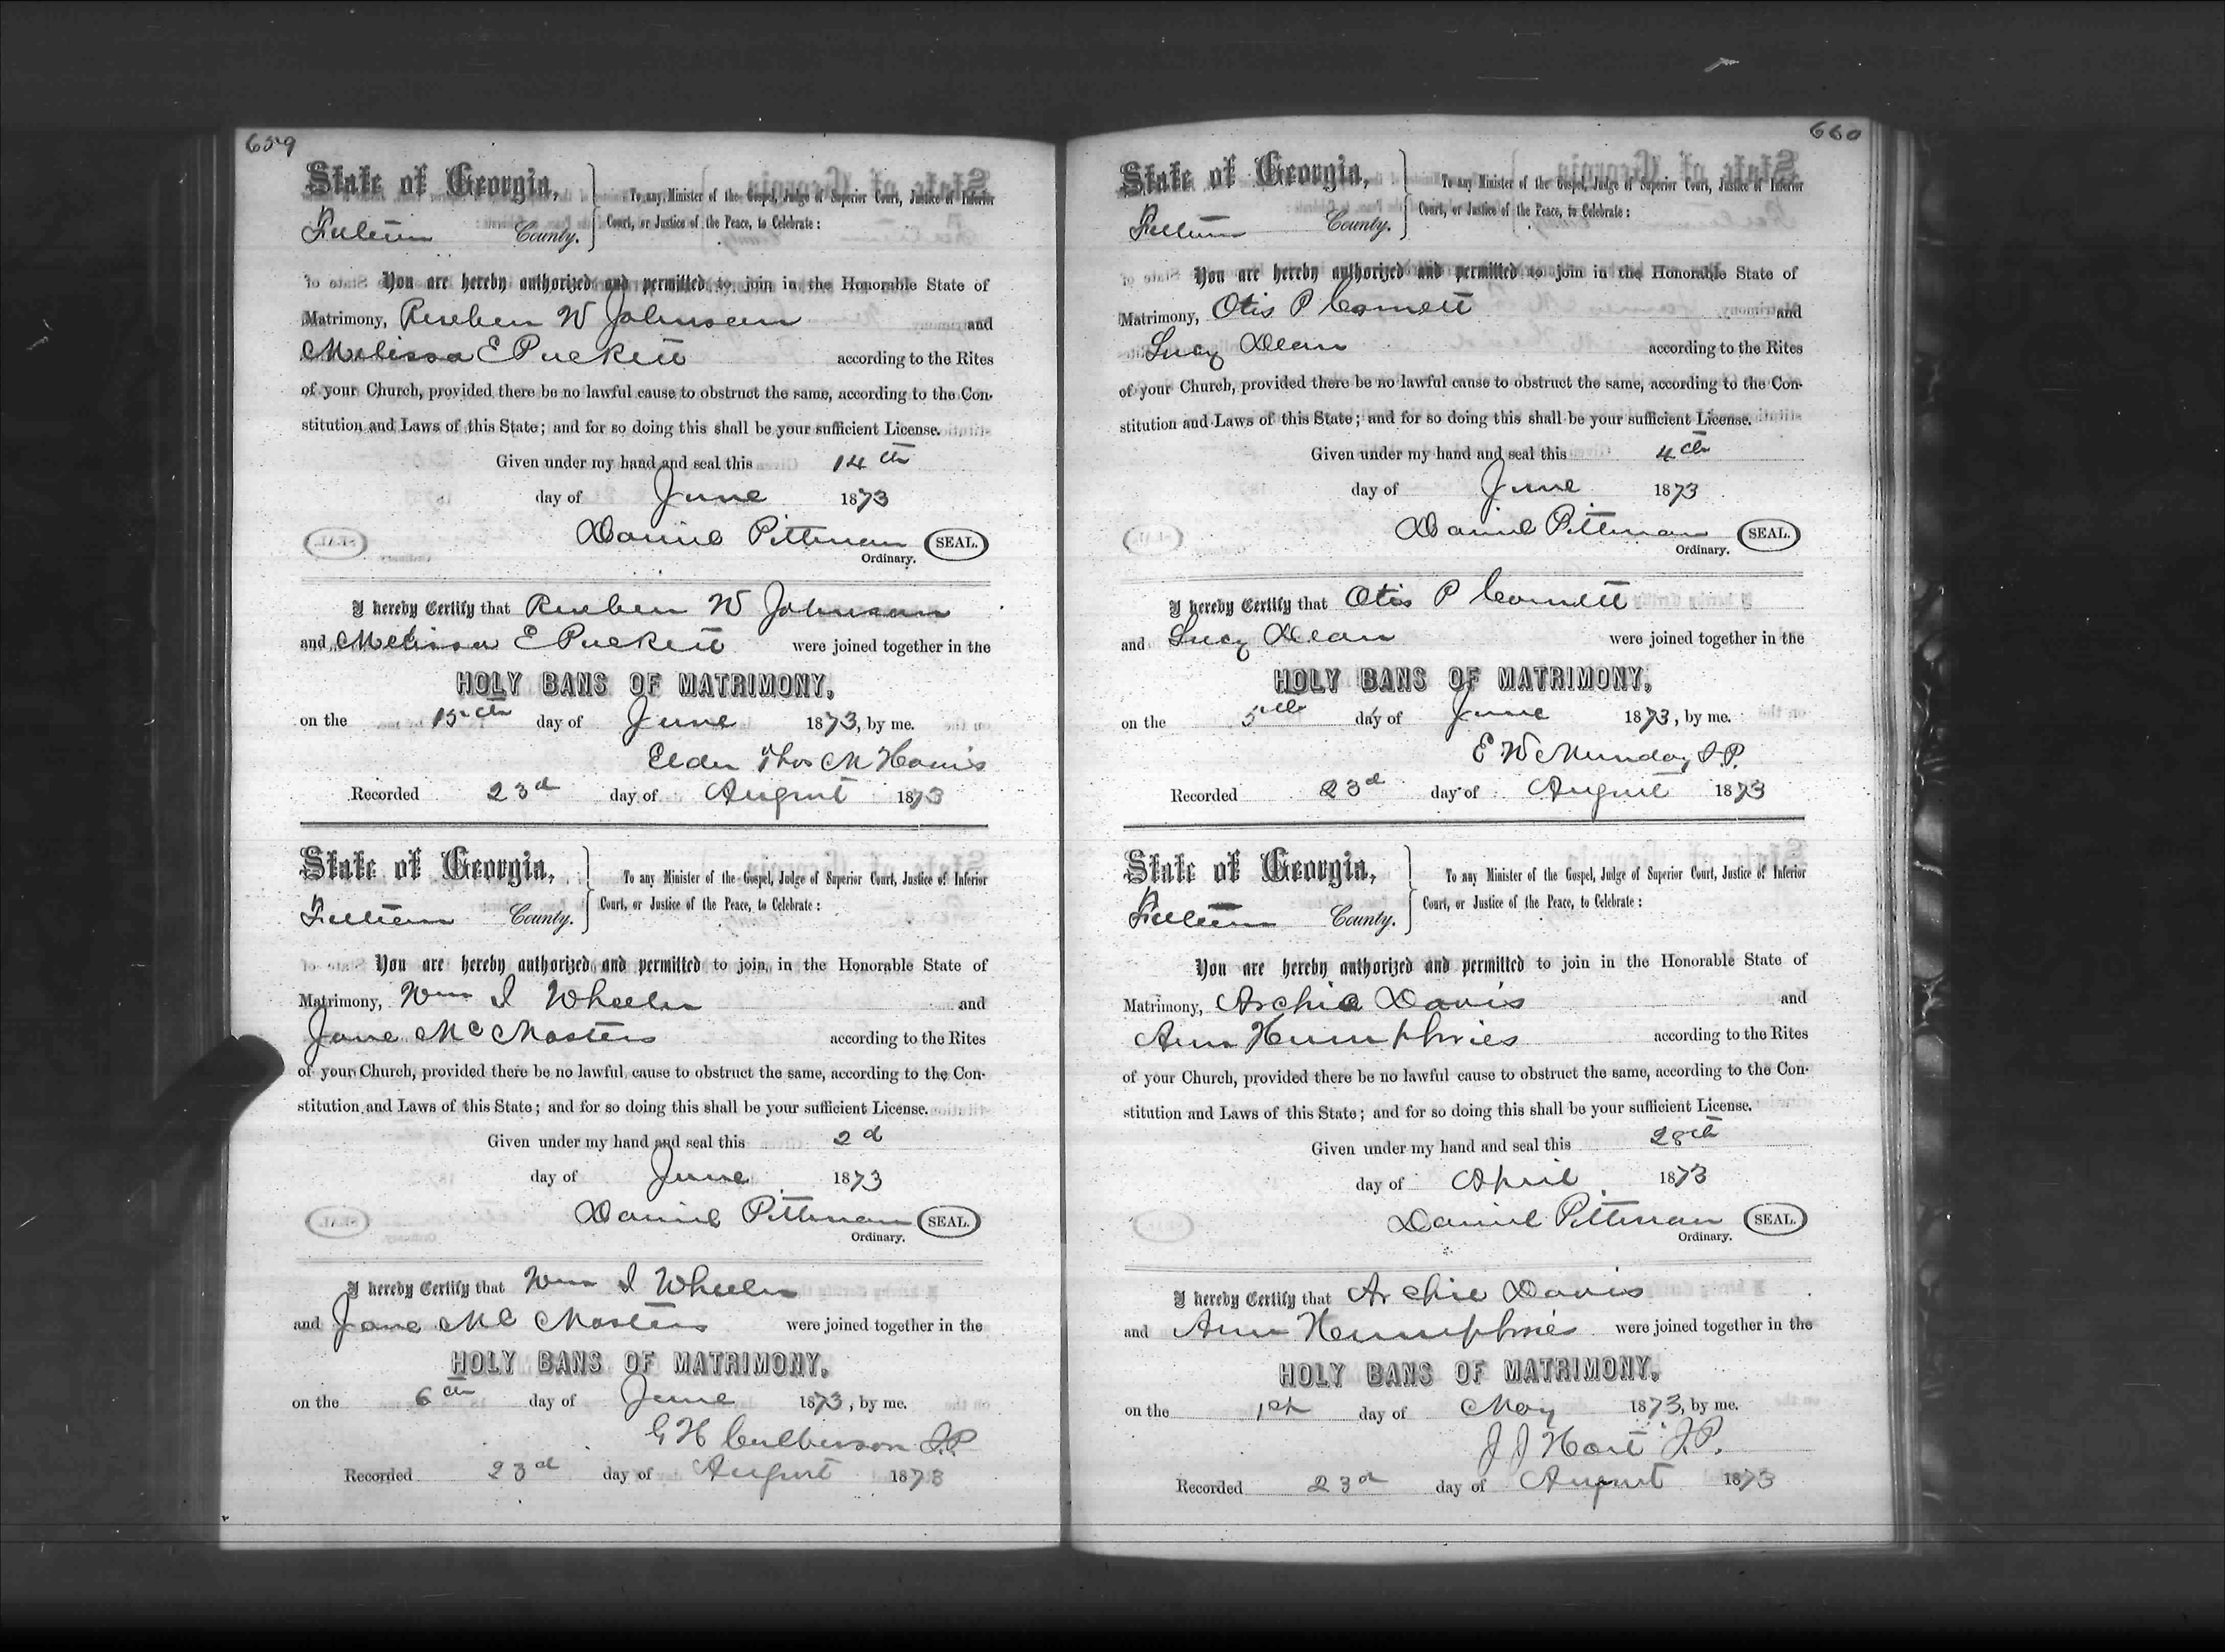 659
State of Georgia,
Fulton County.
To any Minister of the Gospel, Judge of Superior Court, Justice of Inferior
Court, or Justice of the Peace, to Celebrate:
You are hereby authorized and permitted to join in the Honorable State of
Matrimony, Reuben W Johnson and
Melissa E Puckett according to the Rites
of your Church, provided there be no lawful cause to obstruct the same, according to the Con-
stitution and Laws of this State; and for so doing this shall be your sufficient License.
Given under my hand and seal this 14th
day of June 1873
Daniel Pittman SEAL.
Ordinary.
I hereby Certify that Reuben W Johnson
and Melissa E Puckett were joined together in the
HOLY BANS OF MATRIMONY,
on the 15th day of June 1873, by me.
Elder Thos M Harris
Recorded 23d day of August 1873
State of Georgia,
Fulton County.
To any Minister of the Gospel, Judge of Superior Court, Justice of Inferior
Court, or Justice of the Peace, to Celebrate:
You are hereby authorized and permitted to join in the Honorable State of
Matrimony, Wm I Wheeler and
Jane McMasters according to the Rites
of your Church, provided there be no lawful cause to obstruct the same, according to the Con-
stitution and Laws of this State; and for so doing this shall be your sufficient License.
Given under my hand and seal this 2d
day of June 1873
Daniel Pittman SEAL.
Ordinary.
I hereby Certify that Wm I Wheeler
and Jane McMasters were joined together in the
HOLY BANS OF MATRIMONY,
on the 6th day of June 1873, by me.
G H Culberson J.P.
Recorded 23d day of August 1873
660
State of Georgia,
Fulton County.
To any Minister of the Gospel, Judge of Superior Court, Justice of Inferior
Court, or Justice of the Peace, to Celebrate:
You are hereby authorized and permitted to join in the Honorable State of
Matrimony, Otis P Cornett and
Lucy Dean according to the Rites
of your Church, provided there be no lawful cause to obstruct the same, according to the Con-
stitution and Laws of this State; and for so doing this shall be your sufficient License.
Given under my hand and seal this 4th
day of June 1873
Daniel Pittman SEAL.
Ordinary.
I hereby Certify that Otis P Cornett
and Lucy Dean were joined together in the
HOLY BANS OF MATRIMONY,
on the 5th day of June 1873, by me.
E W Munday J.P.
Recorded 23d day of August 1873
State of Georgia,
Fulton County.
To any Minister of the Gospel, Judge of Superior Court, Justice of Inferior
Court, or Justice of the Peace, to Celebrate:
You are hereby authorized and permitted to join in the Honorable State of
Matrimony, Archie Davis and
Ann Humphries according to the Rites
of your Church, provided there be no lawful cause to obstruct the same, according to the Con-
stitution and Laws of this State; and for so doing this shall be your sufficient License.
Given under my hand and seal this 28th
day of April 1873
Daniel Pittman SEAL.
Ordinary.
I hereby Certify that Archie Davis
and Ann Humphries were joined together in the
HOLY BANS OF MATRIMONY,
on the 1st day of May 1873, by me.
J J Hart J.P.
Recorded 23d day of August 1873